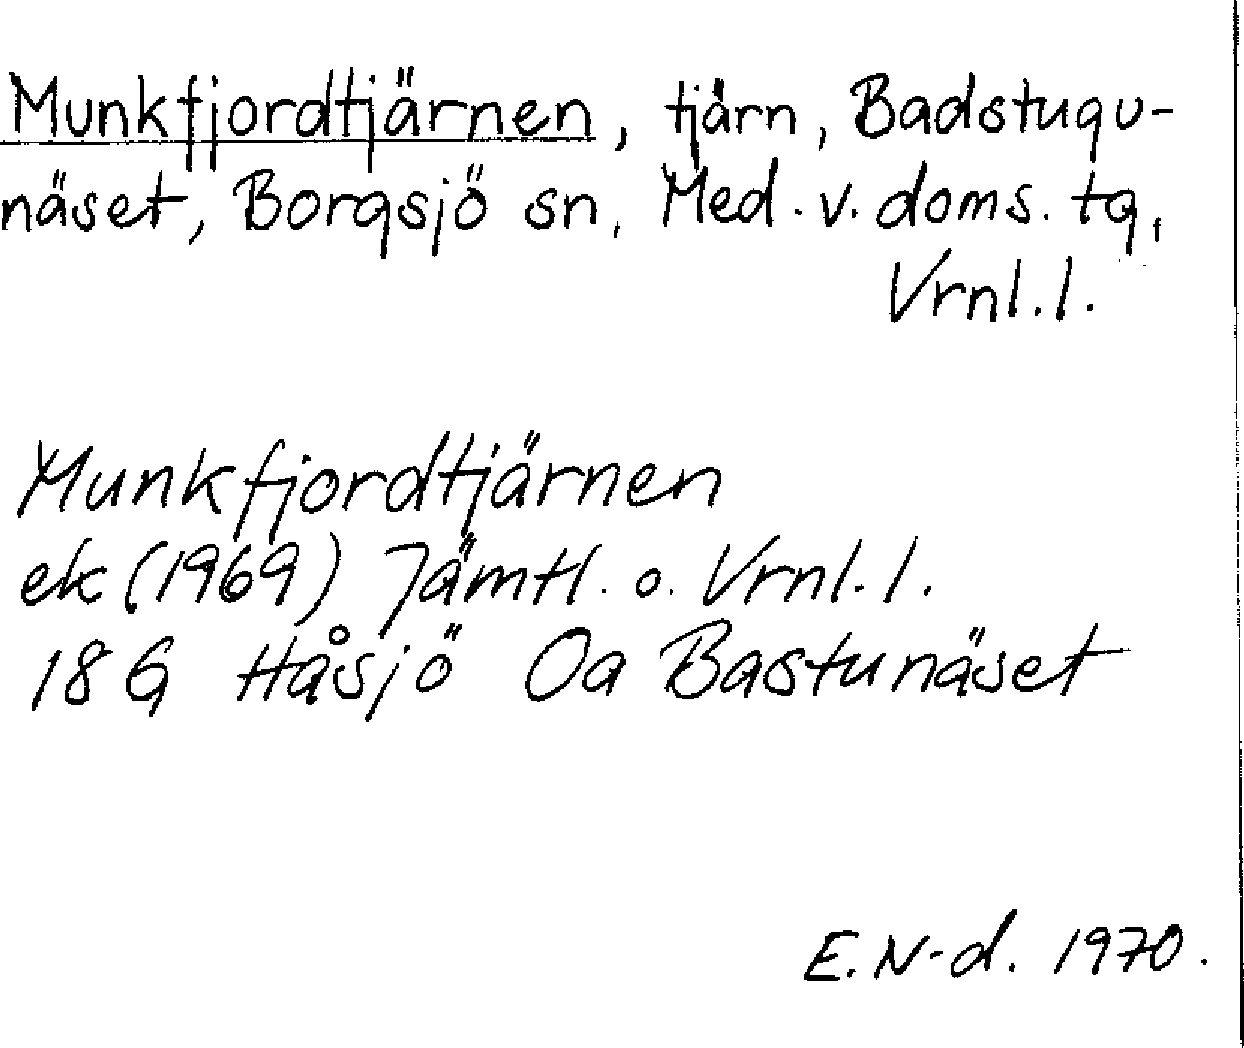 Munkfjordtjärnen, tjärn, Badstugu-
näset, Borgsjö sn, Med. v. doms. tg,
Vrnl. l.
Munkfjordtjärnen
ek (1969) Jämtl. o. Vrnl. l.
18 G Håsjö Oa Bastunäset
E. N-d. 1970.